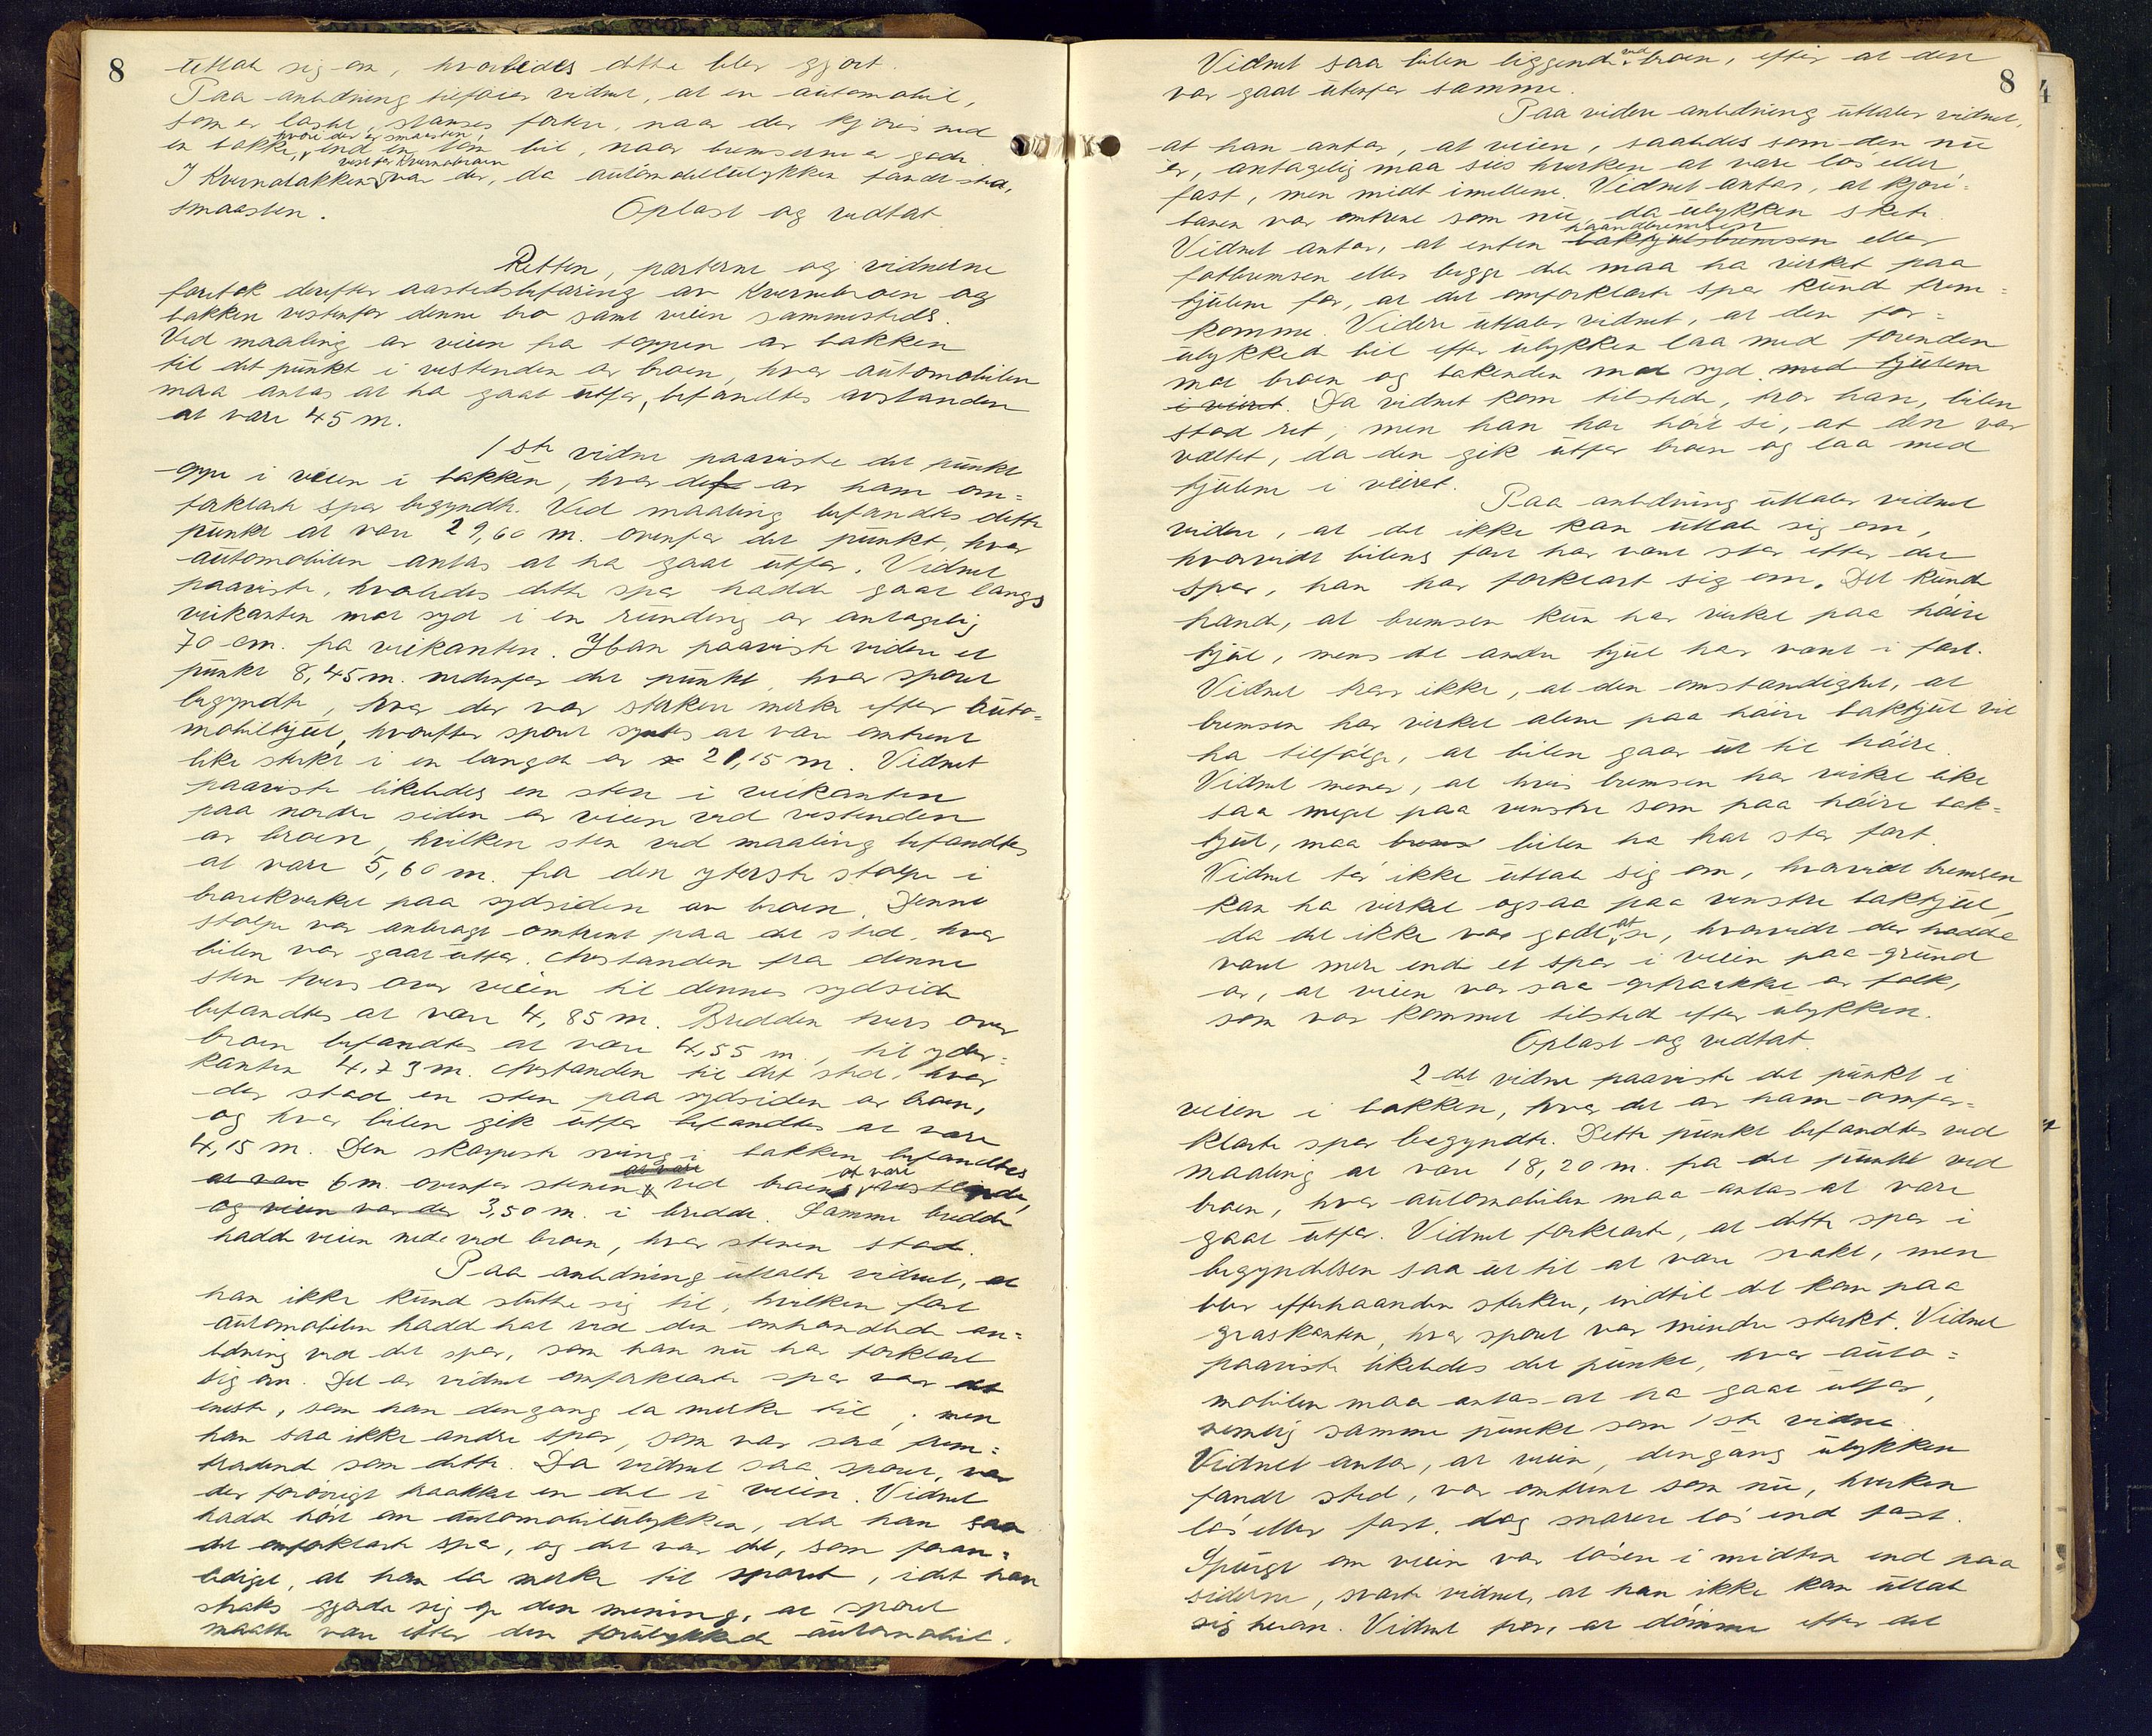 8
uttale sig om, hvorledes dette blev gjort.
Paa anledning tilføier vidnet, at en automobil,
som er lastet, stanses fortere, naar der kjøres ned
hvori der er smaasten,
en bakke, end en tom bil, naar bremserne er gode.
vest for Kvernebroen
I Kvernebakken var der, da automobilulykken fandt sted,
smaasten. Oplæst og vedtat.
Retten, parterne og vidnerne
foretok derefter aastedsbefaring av Kvernebroen og
bakken vestenfor denne bro samt veien sammesteds.
Ved maaling av veien fra toppen av bakken
til det punkt i vestenden av broen, hvor automobilen
maa antas at ha gaat utfor, befandtes avstanden
at være 45 m.
1ste vidne paaviste det punkt
oppe i veien i bakken, hvor det av ham om=
forklarte spor begyndte. Ved maaling befandtes dette
punkt at være 29,60 m. ovenfor det punkt, hvor
automobilen antas at ha gaat utfor. Vidnet
paaviste, hvorledes dette spor hadde gaat langs
veikanten mot syd i en runding av antagelig
70 cm. fra veikanten. Han paaviste videre et
punkt 8,45 m. nedenfor det punkt, hvor sporet
begyndte, hvor der var sterkere merke efter auto=
mobilhjul, hvorefter sporet syntes at være omtrent
like sterkt i en længde av 21,15 m. Vidnet
paaviste likeledes en sten i veikanten
paa nordre siden av veien ved vestenden
av broen, hvilken sten ved maaling befandtes
at være 5,60 m. fra den yterste stolpe i
brorekverket paa sydsiden av broen. Denne
stolpe var anbragt omtrent paa det sted, hvor
bilen var gaat utfor. Avstanden fra denne
sten tvers over veien til dennes sydside
befandtes at være 4,85 m. Bredden tvers over
broen befandtes at være 4,55 m., til yder=
kanten 4,73 m. Avstanden til det sted, hvor
der stod en sten paa sydsiden av broen,
og hvor bilen gik utfor befandtes at være
4,15 m. Den skarpeste sving i bakken befandtes
at være at være
at være 6 m. ovenfor stenen ved broens vestende,
og veien var der 3,50 m. i bredde. Samme bredde
hadde veien nede ved broen, hvor stenen stod.
Paa anledning uttalte vidnet, at
han ikke kunde slutte sig til, hvilken fart
automobilen hadde hat ved den omhandlede an=
ledning ved det spor, som han nu har forklart
sig om. Det av vidnet omforklarte spor var det
eneste, som han dengang la merke til, men
han saa ikke andre spor, som var saa frem=
trædende som dette. Da vidnet saa sporet, var
der forøvrigt traakket en del i veien. Vidnet
hadde hørt om automobilulykken, da han saa
det omforklarte spor, og det var det, som foran=
lediget, at han la merke til sporet, idet han
straks gjorde sig op den mening, at sporet
maatte være efter den forulykkede automobil.
8
4
Vidnet saa bilen liggende ved broen, efter at den
var gaat utenfor samme.
Paa videre anledning uttaler vidnet,
at han antar, at veien, saaledes som den nu
er, antagelig maa sies hverken at være løs eller
fast, men midt imellem. Vidnet antar, at kjøre=
banen var omtrent som nu, da ulykken skete.
haandbremsen
Vidnet antar, at enten bakhjulsbremsen eller
fotbremsen eller begge dele maa ha virket paa
hjulene for, at det omforklarte spor kunde frem=
komme. Videre uttaler vidnet, at den for=
ulykkede bil efter ulykken laa med forenden
mot broen og bakenden mot syd med hjulene
i veiret. Da vidnet kom tilstede, tror han, bilen
stod ret, men han har hørt si, at den var
væltet, da den gik utfor broen og laa med
hjulene i veiret.
Paa anledning uttaler vidnet
videre, at det ikke kan uttale sig om,
hvorvidt bilens fart har været stor efter det
spor, han har forklart sig om. Det kunde
hænde, at bremsen kun har virket paa høire
hjul, mens det andre hjul har været i fart.
Vidnet tror ikke, at den omstændighet, at
bremsen har virket alene paa høire bakhjul vil
ha tilfølge, at bilen gaar ut til høire.
Vidnet mener, at hvis bremsen har virket like
saa meget paa venstre som paa høire bak=
hjul, maa brems bilen ha hat stor fart.
Vidnet tør ikke uttale sig om, hvorvidt bremsen
kan ha virket ogsaa paa venstre bakhjul,
da det ikke var godt at se, hvorvidt der hadde
været mere end et spor i veien paa grund
av, at veien var saa optraakket av folk,
som var kommet tilstede efter ulykken.
Oplæst og vedtat.
2det vidne paaviste det punkt i
veien i bakken, hvor det av ham omfor=
klarte spor begyndte. Dette punkt befandtes ved
maaling at være 18,20 m. fra det punkt ved
broen, hvor automobilen maa antas at være
gaat utfor. Vidnet forklarte, at dette spor i
begyndelsen saa ut til at være svakt, men
blev efterhaanden sterkere, indtil det kom paa
græskanten, hvor sporet var mindre sterkt. Vidnet
paaviste likeledes det punkt, hvor auto=
mobilen maa antas at ha gaat utfor,
nemlig samme punkt som 1ste vidne.
Vidnet antar, at veien, dengang ulykken
fandt sted, var omtrent som nu, hverken
løs eller fast, dog snarere løs end fast.
Spurgt om veien var løsere i midten end paa
siderne, svarte vidnet, at han ikke kan uttale
sig herom. Vidnet tror, at dømme efter det